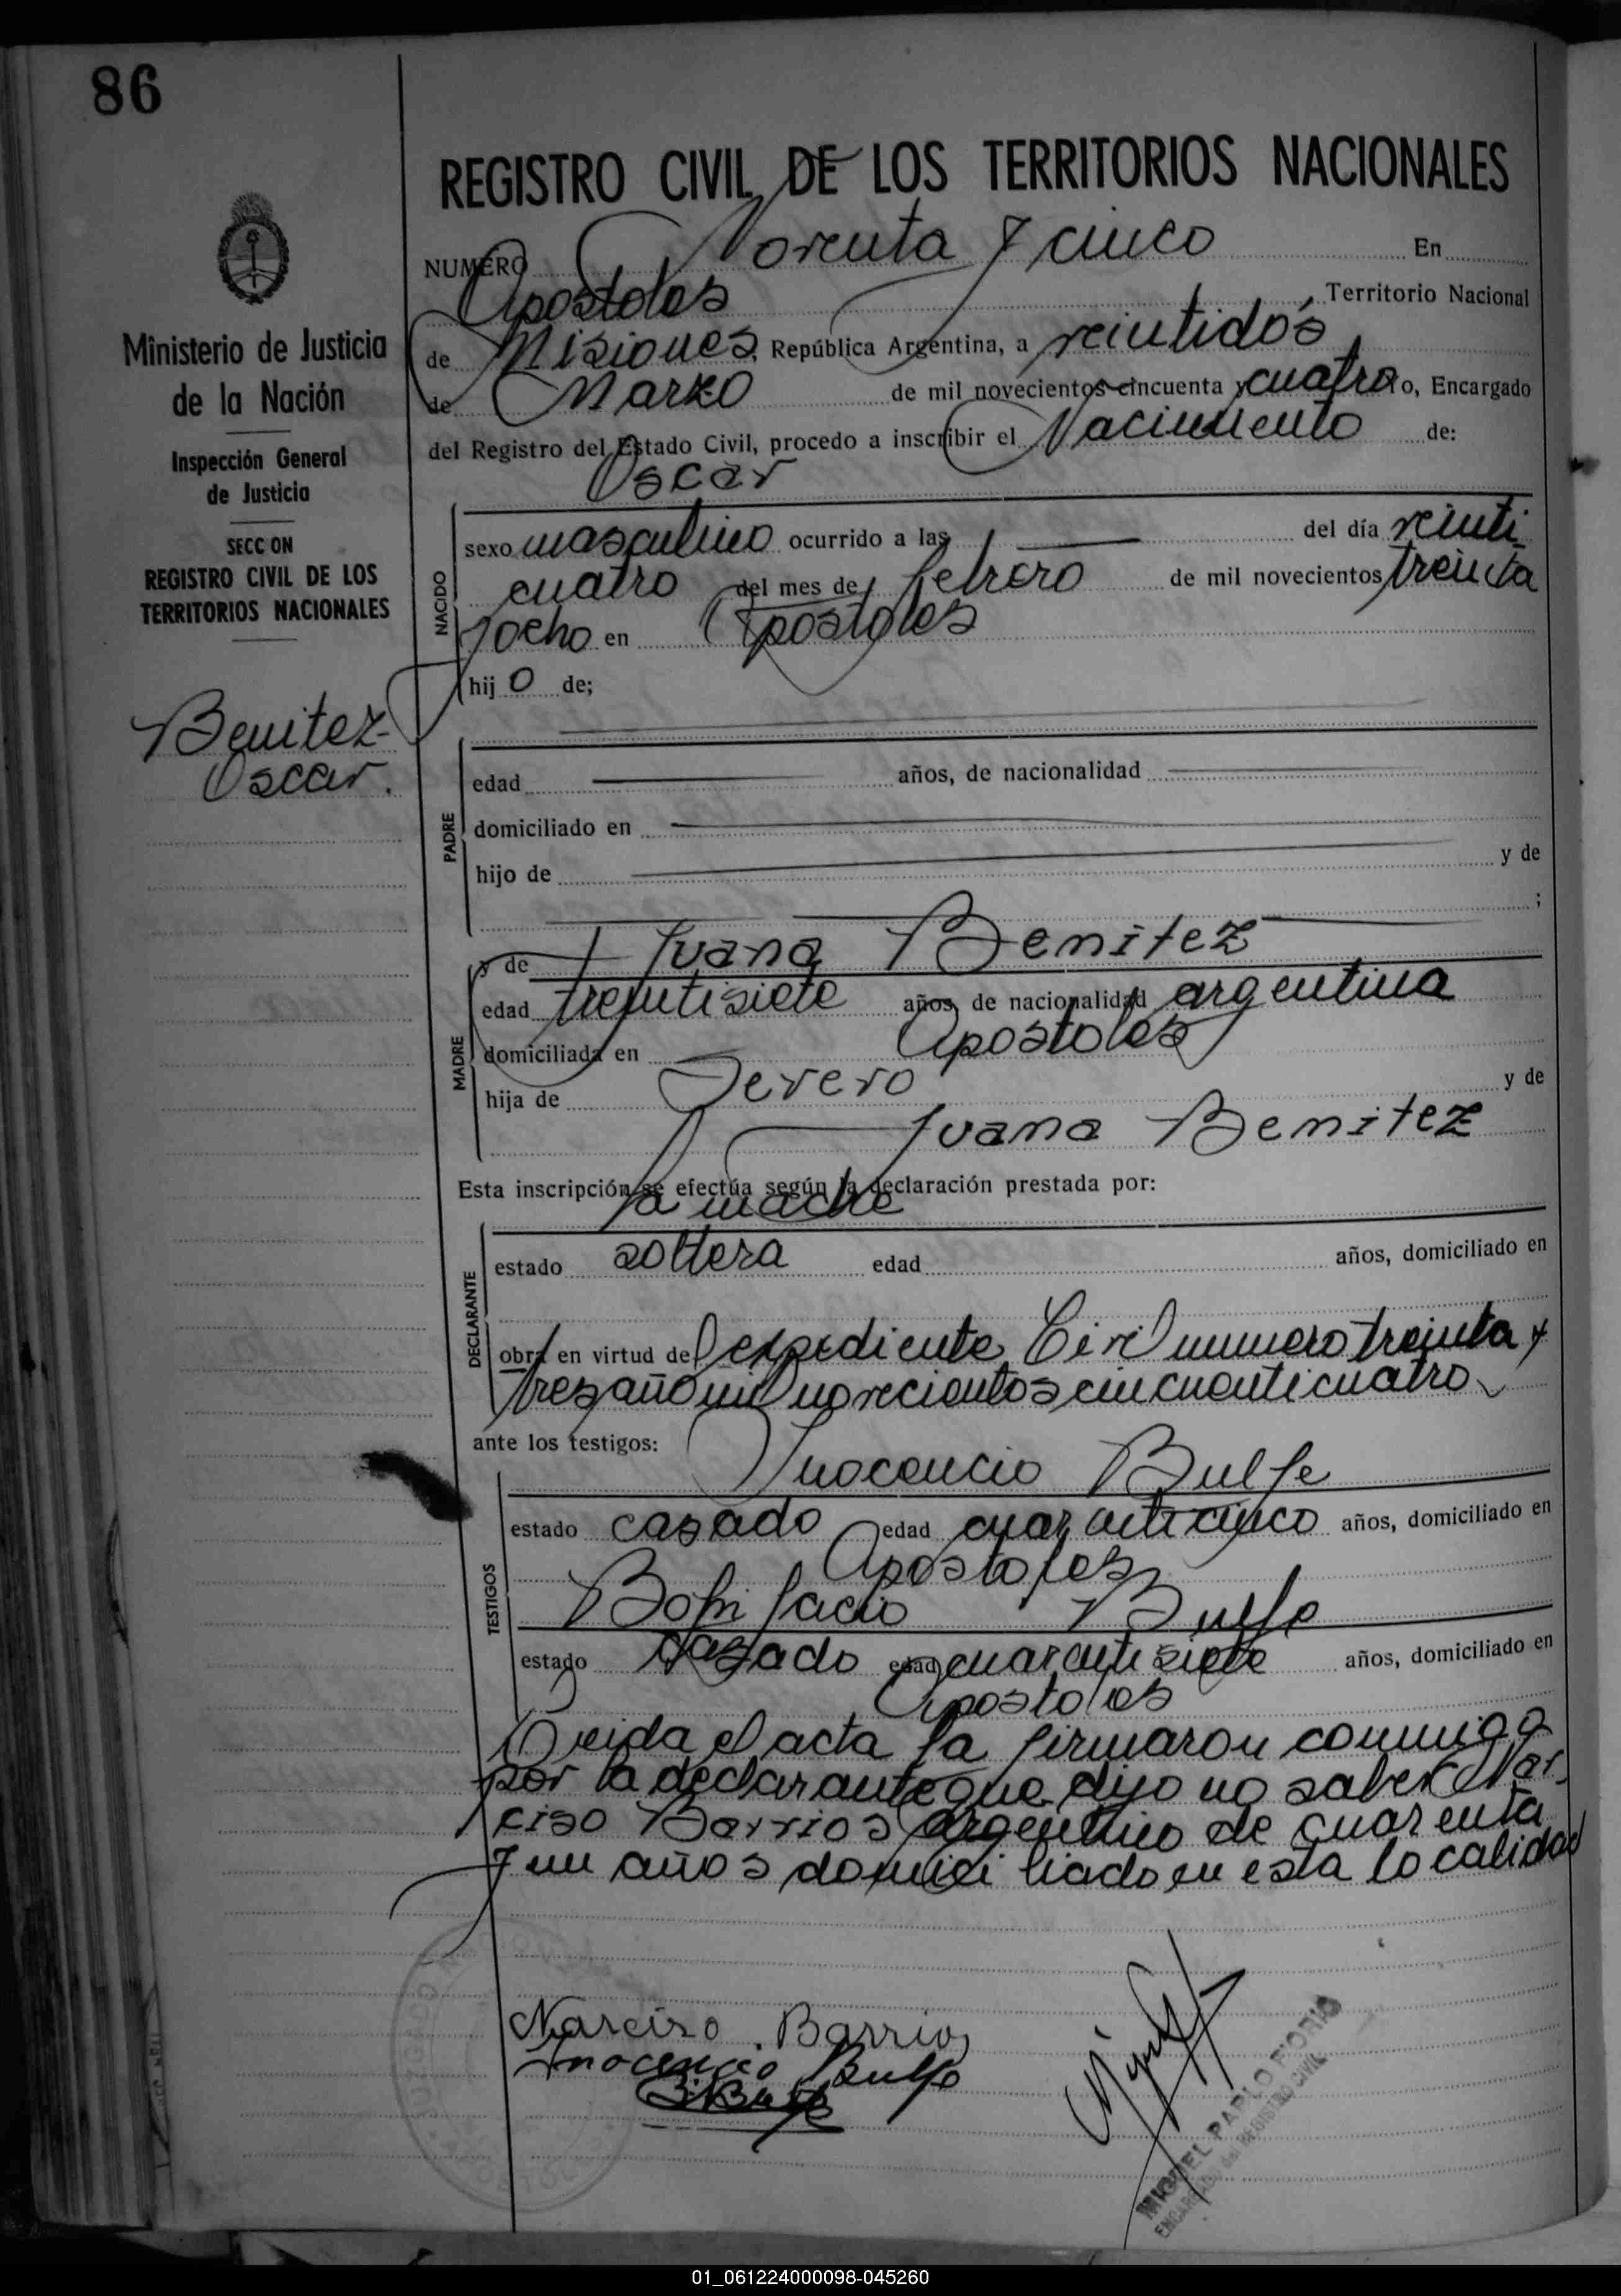 86
REGISTRO CIVIL DE LOS TERRITORIOS NACIONALES
NUMERO Noventa y cinco En
Apostoles Territorio Nacional
de Misiones, República Argentina, a veintidós
de Marzo de mil novecientos cincuenta y cuatro yo, Encargado
del Registro del Estado Civil, procedo a inscribir el Nacimiento de:
Oscar
Ministerio de Justicia
de la Nación
Inspección General
de Justicia
SECC ON
REGISTRO CIVIL DE LOS
TERRITORIOS NACIONALES
Benitez
Oscar.
NACIDO
sexo masculino ocurrido a las — del día veinti
cuatro del mes de febrero de mil novecientos treinta
y ocho en Apostoles
hij o de;
PADRE
edad años, de nacionalidad
domiciliado en
hijo de y de
;
MADRE
y de Juana Benítez
edad treintisiete años, de nacionalidad argentina
domiciliada en Apostoles
hija de Severo y de
Juana Benitez
Esta inscripción se efectúa según la declaración prestada por:
la madre
DECLARANTE
estado soltera edad años, domiciliado en
obra en virtud del expediente Civil numero treinta y
tres año mil novecientos cincuenticuatro
ante los testigos:
TESTIGOS
Inocencio Bulfe
estado casado edad cuarenticinco años, domiciliado en
Apostoles
Bonifacio Bulfe
estado casado edad cuarentisiete años, domiciliado en
Apostoles
Leida el acta la firmaron conmigo
por la declarante que dijo no saber Nar
ciso Barrios argentino de cuarenta
y un años domiciliado en esta localidad
Narciso Barrios
Inocencio Bulfe
B. Bulfe
MIGUEL PABLO FIORIO
ENCARGADO del REGISTRO CIVIL
JUZGADO
01_061224000098-045260